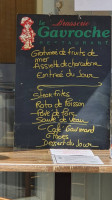 Brasserie
Le
Gavroche
RESTAURANT
Gratinée de fruits de
mer
Assiette de charcuterie
Entrée du Jour
Steak frites
Pavé de
Sauté de Veau
Café Gourmand
Glaces
Dessert du Jour